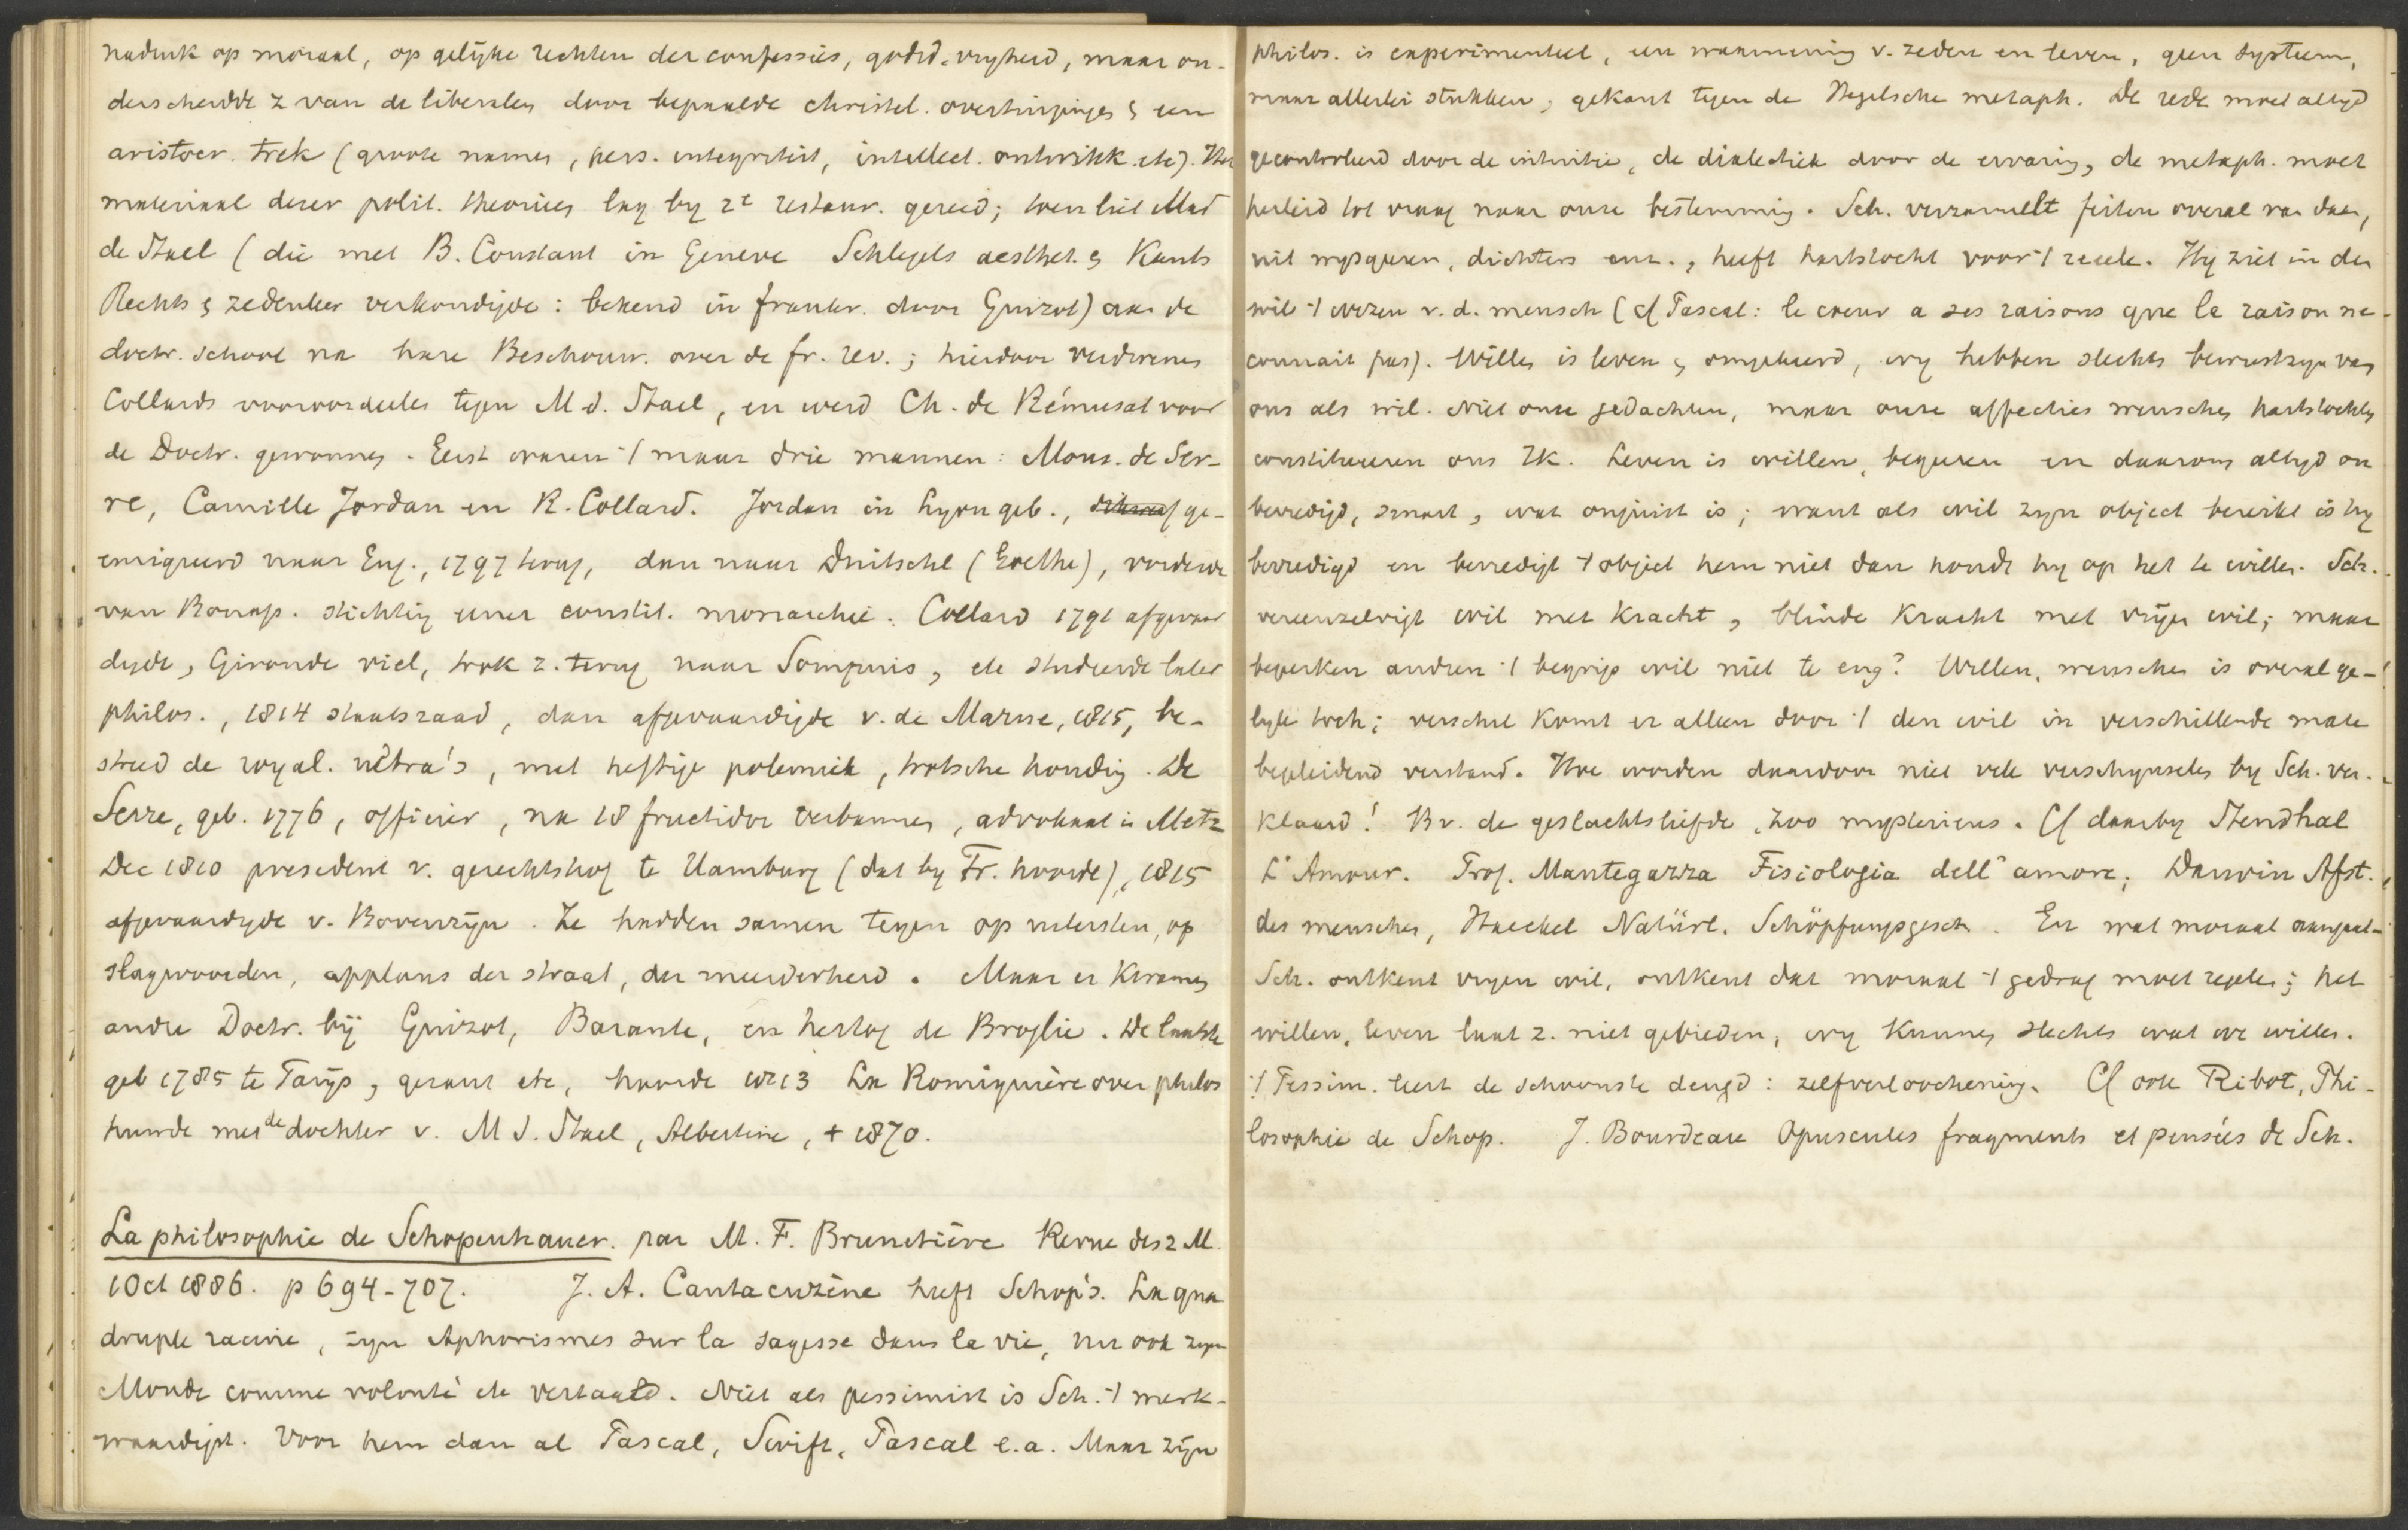 nadruk op moraal, op gelijke rechten der confessies, godsd. vryheid, maar on-
derscheidde z van de liberalen door bepaalde christel. overtuigingen & een
aristocr. trek (groote namen, pers. integriteit, intellect. ontwikk. etc). Het
materiaal dezer polit. theoriees lag by 2e restaur. gereed; toen liet Mad
de Stael (die met B. Constant in Geneve Schlegels aesthet. & Kants
Rechts & zedenleer verkondigde: bekend in frankr. door Guizot) aan de
doctr. school na hare Beschouw. over de fr. rev.; hierdoor verdwenen
Collards vooroordeelen tegen M d. Stael, en werd Ch. de Rémusat voor
de Doctr. gewonnen. Eerst waren 't maar drie mannen: Mons. de Ser-
re, Camille Jordan en R. Collard. Jordan in Lyon geb., ge-
emigreerd naar Eng., 1797 terug, dan naar Duitschl (Goethe), vorderde
van Bonap. stichting eener constit. monarchie. Collard 1791 afgevaar
digde, Gironde viel, trok z. terug naar Sompuis, etc studeerde later
philos., 1814 staatsraad, dan afgevaardigde v. de Marne, 1815, be-
streed de royal. ultra's, met heftige polemiek, trotsche houding. De
Serre, geb. 1776, officier, na 18 fructidor verbannen, advokaat in Metz
Dec 1810 president v. gerechtshof te Hamburg (dat by Fr. hoorde), 1815
afgevaardigde v. Bovenrijn. Ze hadden samen tegen op uitersten, op
slagwoorden, applaus der straat, der meerderheid. Maar er kwamen
andre Doctr. bij Guizot, Barante, en hertog de Broglie. De laatste
geb 1785 te Parijs, gezant etc, hoorde 1813 La Romiguière over philos
huwde met de dochter v. M d. Stael, Albertine, † 1870.

La philosophie de Schopenhauer. par M. F. Brunetière Revue des 2 M.
1 Oct 1886. p 694-707. J. A. Cantacuzène heeft Schop's. La qua
druple racine, zyn Aphorismes sur la sagesse dans la vie, nu ook zyn
Monde comme volonté etc vertaald. Niet als pessimist is Sch. 't merk-
waardigst. Voor hem dan al Pascal, Swift, Pascal e.a. Maar zijn
philos. is experimenteel, een waarneming v. zeden en leven, geen systeem,
maar allerlei stukken, gekant tegen de Hegelsche metaph. De rede moet altyd
gecontroleerd door de intuitie, de dialectiek door de ervaring, de metaph. moet
herleid tot vraag naar onze bestemming. Sch. verzamelt feiten overal van daan,
uit mysquren, dichters enz., heeft hartstocht voor 't reeele. Hy ziet in den
wil 't wezen v. d. mensch (cf Pascal: le coeur a ses raisons que la raison ne
connait pas). Willen is leven & omgekeerd, wy hebben slechts bewustzyn van
ons als wil. Niet onze gedachten, maar onze affecties wenschen hartstochten
constitueeren ons Ik. Leven is willen, begeeren en daarom altyd on
bevredigd, smart, wat onjuist is; want als wil zyn object bereikt is hy
bevredigd en bevredigt 't object hem niet dan houdt hy op het te willen. Sch.
vereenzelvigt wil met kracht, blinde kracht met vrijen wil; maar
beperken andren 't begrip wil niet te eng? Willen, wenschen is overal ge-
lyk toch; verschil komt er alleen door 't den wil in verschillende mate
begeleidend verstand. Hoe worden daardoor niet vele verschynselen by Sch. ver-
klaard! Bv. de geslachtsliefde, zoo mysterieus. Cf daarby Stendhal
L'Amour. Prof. Mantegazza Fisiologia dell'amore; Darwin Afst.
des menschen, Haeckel Natürl. Schöpfungsgesch. En wat moraal aangaat-
Sch. ontkent vryen wil, ontkent dat moraal 't gedrag moet regelen; het
willen, leven laat z. niet gebieden, wy kunnen slechts wat we willen.
't Pessim. leert de schoonste deugd: zelfverloochening. Cf ook Ribot, Phi-
losophie de Schop. J. Bourdeau Opuscules fragments et pensées de Sch.